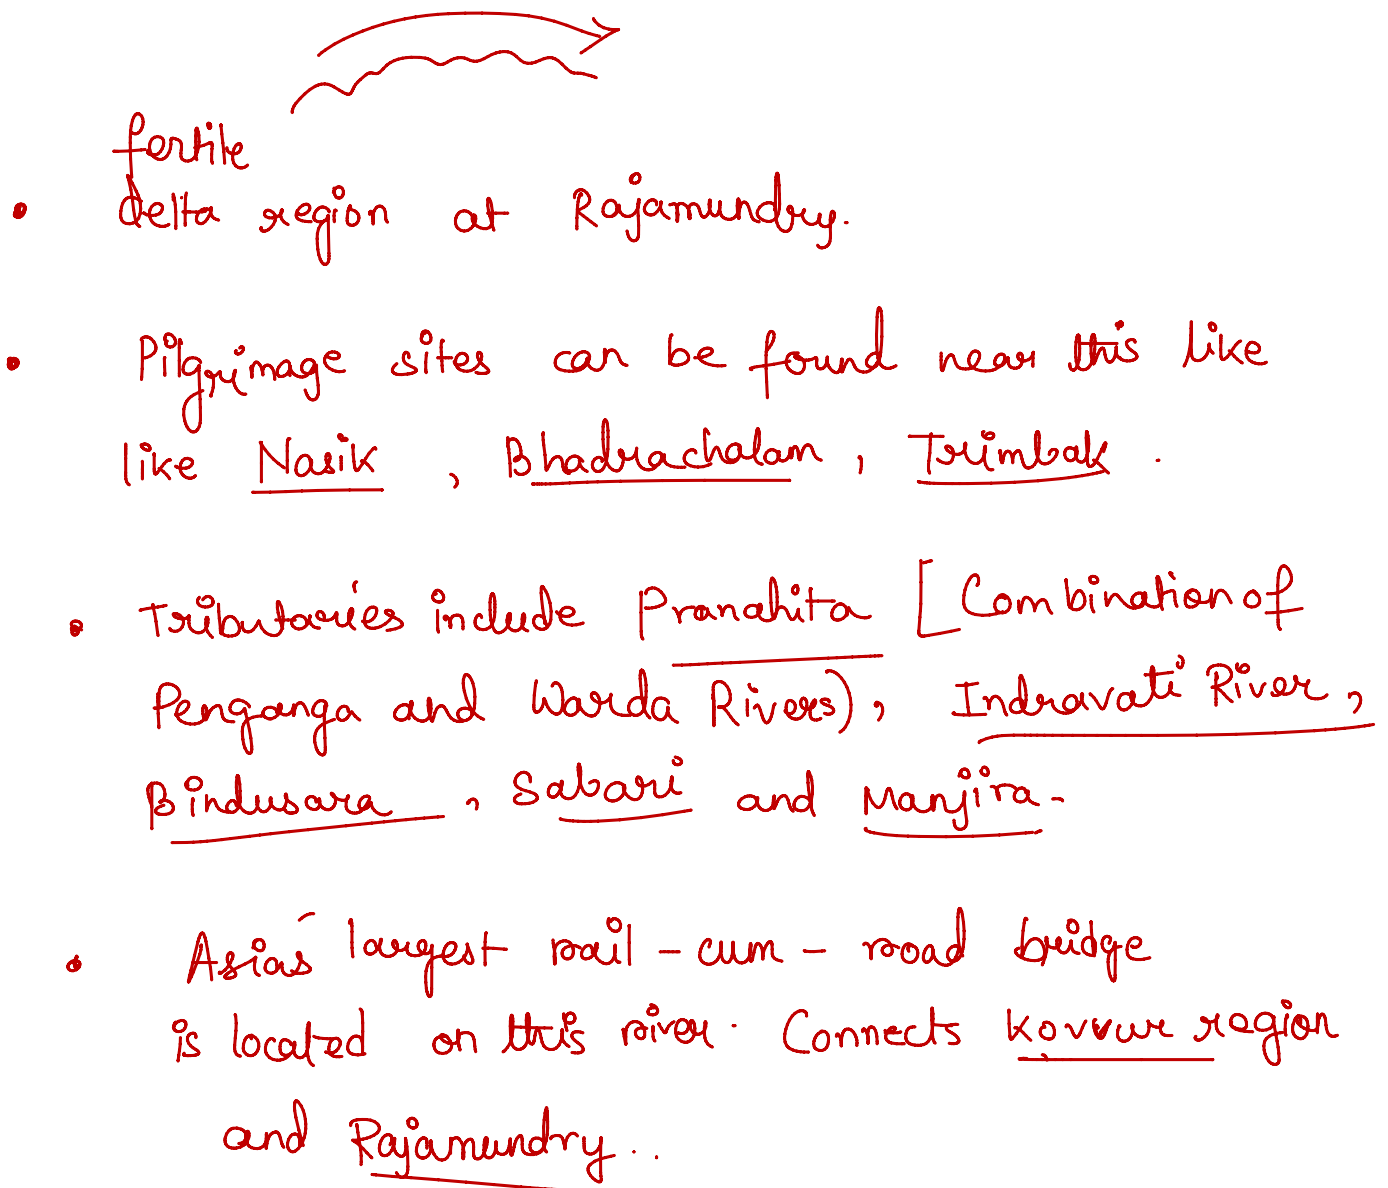 fertile
• delta region at Rajamundry.
• Pilgrimage sites can be found near this like
like Nasik , Bhadrachalam , Trimbak .
• Tributaries include Pranahita [Combination of
Penganga and Warda Rivers), Indravati River,
Bindusara , Sabari and Manjira.
• Asias' largest rail-cum-road bridge
is located on this river. Connects Kovvur region
and Rajamundry..